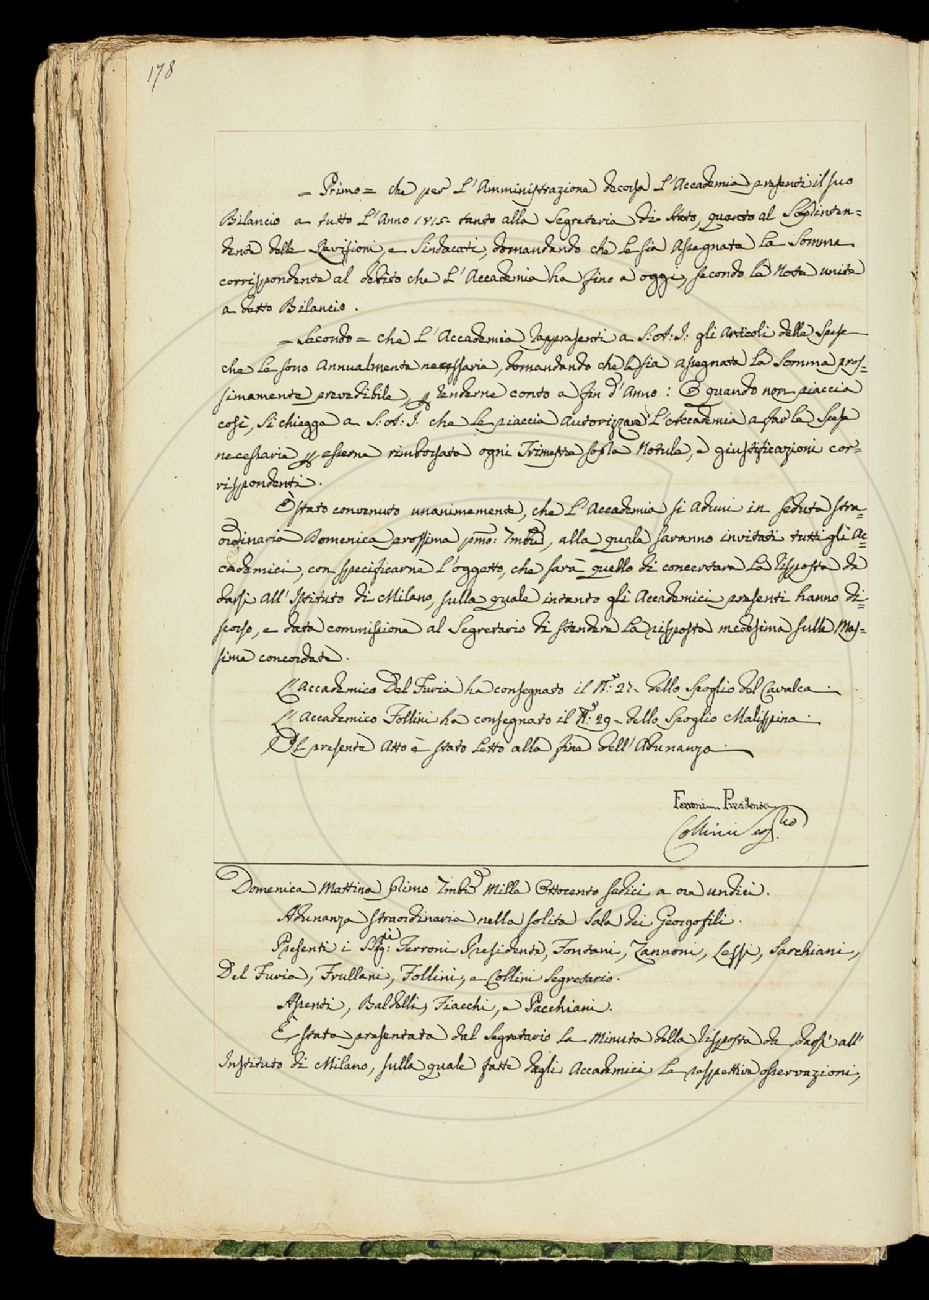 178
= Primo = che per l'Amministrazione decorsa l'Accademia presenti il suo
Bilancio a tutto l'Anno 1815 tanto alla Segreteria di Stato, quanto al Soprinten=
dente delle Revisioni, e Sindacati, domandando che le sia assegnata la Somma
corrispondente al debito che l'Accademia ha fino a oggi, secondo la Nota unita
a detto Bilancio.
= Secondo = che l'Accademia rappresenti a S.A.I. gli Articoli delle Spese
che le sono Annualmente necessarie, domandando che le sia assegnata la Somma pros=
simamente prevedibile, p renderne conto a fin d'Anno: E quando non piaccia
così, si chiegga a S.A.I. che le piaccia autorizzare l'Accademia a far le Spese
necessarie p esserne rimborsata ogni Trimestre sulla Notula, e giustificazioni cor=
rispondenti.
È stato convenuto unanimemente, che l'Accademia si aduni in seduta stra=
ordinaria Domenica prossima pmo: Xmbre, alla quale saranno invitati tutti gli Ac=
cademici, con specificarne l'oggetto, che sarà quello di concertare la risposta da
darsi all'Istituto di Milano, sulla quale intanto gli Accademici presenti hanno di=
scorso, e data commissione al Segretario di stendere la risposta medesima sulle Mas=
sime concordate.
L'Accademico Del Furia ha consegnato il N.° 27. dello Spoglio del Cavalca.
L'Accademico Follini ha consegnato il N.° 29. dello Spoglio Malispina.
Il presente Atto è stato letto alla fine dell'Adunanza.
Ferroni Presidente
Collini Segrio
Domenica Mattina primo Xmbre Mille Ottocento sedici a ore undici.
Adunanza straordinaria nella solita Sala dei Georgofili.
Presenti i SSri: Ferroni Presidente, Fontani, Zannoni, Lessi, Sarchiani,
Del Furia, Frullani, Follini, e Collini Segretario.
Assenti, Baldelli, Fiacchi, e Pacchiani.
È stata presentata dal Segretario la Minuta della risposta da darsi all'
Instituto di Milano, sulla quale fatte dagli Accademici le respettive osservazioni,